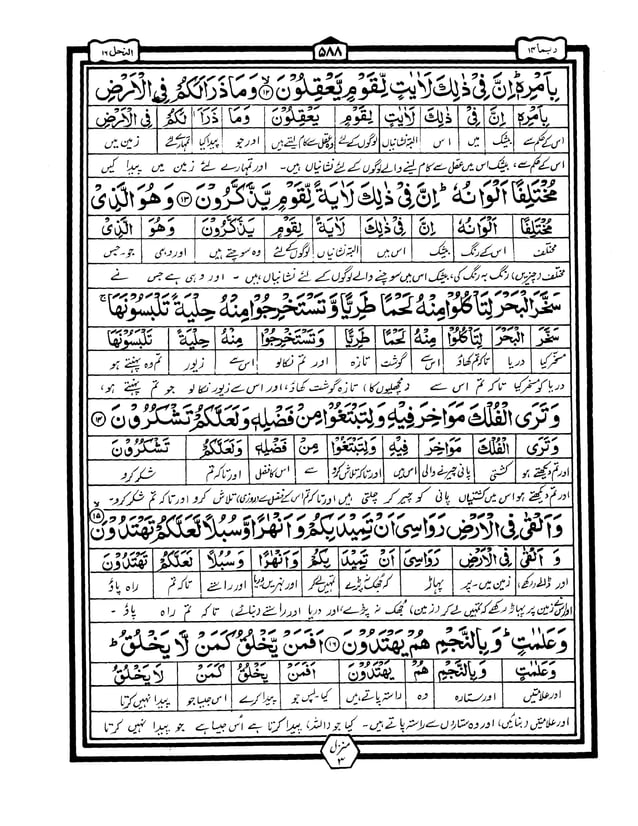 ربما ۱۴
۵۸۸
النحل ۱۶
بِاَمْرِهٖ ؕ اِنَّ فِیْ ذٰلِكَ لَاٰیٰتٍ لِّقَوْمٍ یَّعْقِلُوْنَ ۙ﴿۱۲﴾ وَمَا ذَرَاَ لَكُمْ فِی الْاَرْضِ
بِاَمْرِهٖ اِنَّ فِیْ ذٰلِكَ لَاٰیٰتٍ لِقَوْمٍ یَعْقِلُوْنَ وَمَا ذَرَاَ لَكُمْ فِی الْاَرْضِ
اس کے حکم سے بیشک میں اس البتہ نشانیاں لوگوں کے لئے وہ عقل سے کام لیتے ہیں اور جو پیدا کیا تمہارے لئے زمین میں
اس کے حکم سے، بیشک اس میں عقل سے کام لینے والے لوگوں کے لئے نشانیاں ہیں۔ اور تمہارے لئے زمین میں پیدا کیں
مُخْتَلِفًا اَلْوَانُهٗ ؕ اِنَّ فِیْ ذٰلِكَ لَاٰیَةً لِّقَوْمٍ یَّذَّكَّرُوْنَ ﴿۱۳﴾ وَهُوَ الَّذِیْ
مُخْتَلِفًا اَلْوَانُهٗ اِنَّ فِیْ ذٰلِكَ لَاٰیَةً لِقَوْمٍ یَذَّكَّرُوْنَ وَهُوَ الَّذِیْ
مختلف اس کے رنگ بیشک اس میں البتہ نشانیاں لوگوں کے لئے وہ سوچتے ہیں اور وہی جو۔جس
مختلف (چیزیں) رنگ بہ رنگ کی، بیشک اس میں سوچنے والے لوگوں کے لئے نشانیاں ہیں۔ اور وہی ہے جس نے
سَخَّرَ الْبَحْرَ لِتَاْكُلُوْا مِنْهُ لَحْمًا طَرِیًّا وَّتَسْتَخْرِجُوْا مِنْهُ حِلْیَةً تَلْبَسُوْنَهَا ۚ
سَخَّرَ الْبَحْرَ لِتَاْكُلُوْا مِنْهُ لَحْمًا طَرِیًّا وَّتَسْتَخْرِجُوْا مِنْهُ حِلْیَةً تَلْبَسُوْنَهَا
مسخر کیا دریا تاکہ تم کھاؤ اس سے گوشت تازہ اور تم نکالو اس سے زیور تم وہ پہنتے ہو
دریا کو مسخر کیا تاکہ تم اس سے (مچھلیوں کا) تازہ گوشت کھاؤ، اور اس سے زیور نکالو جو تم پہنتے ہو،
وَتَرَی الْفُلْكَ مَوَاخِرَ فِیْهِ وَلِتَبْتَغُوْا مِنْ فَضْلِهٖ وَلَعَلَّكُمْ تَشْكُرُوْنَ ﴿۱۴﴾
وَتَرَی الْفُلْكَ مَوَاخِرَ فِیْهِ وَلِتَبْتَغُوْا مِنْ فَضْلِهٖ وَلَعَلَّكُمْ تَشْكُرُوْنَ
اور تم دیکھتے ہو کشتی پانی چیرنے والی اس میں اور تاکہ تلاش کرو سے اس کا فضل اور تاکہ تم شکر کرو
اور تم دیکھتے ہو اس میں کشتیاں پانی کو چیر کر چلتی ہیں اور تاکہ تم اس کے فضل سے (روزی) تلاش کرو اور تاکہ تم شکر کرو۔
وَاَلْقٰی فِی الْاَرْضِ رَوَاسِیَ اَنْ تَمِیْدَ بِكُمْ وَاَنْهٰرًا وَّسُبُلًا لَّعَلَّكُمْ تَهْتَدُوْنَ ۙ﴿۱۵﴾
وَ اَلْقٰی فِی الْاَرْضِ رَوَاسِیَ اَنْ تَمِیْدَ بِكُمْ وَاَنْهٰرًا وَّسُبُلًا لَعَلَّكُمْ تَهْتَدُوْنَ
اور ڈالے (رکھے) زمین میں۔پر پہاڑ کہ جھک نہ پڑے تمہیں لیکر اور نہریں دریا اور راستے تاکہ تم راہ پاؤ
اور اس نے زمین پر پہاڑ رکھے کہ تمہیں لے کر (زمین) جھک نہ پڑے، اور دریا اور راستے (بنائے) تاکہ تم راہ پاؤ۔
وَعَلٰمٰتٍ ؕ وَبِالنَّجْمِ هُمْ یَهْتَدُوْنَ ﴿۱۶﴾ اَفَمَنْ یَّخْلُقُ كَمَنْ لَّا یَخْلُقُ ؕ
وَعَلٰمٰتٍ وَبِالنَّجْمِ هُمْ یَهْتَدُوْنَ اَفَمَنْ یَّخْلُقُ كَمَنْ لَا یَخْلُقُ
اور علامتیں اور ستارہ وہ راستہ پاتے ہیں کیا۔پس جو پیدا کرے اس جیسا جو پیدا نہیں کرتا
اور علامتیں (بنائیں)، اور وہ ستاروں سے راستہ پاتے ہیں۔ کیا جو (اللہ) پیدا کرتا ہے اُس جیسا ہے جو پیدا نہیں کرتا
منزل
۳